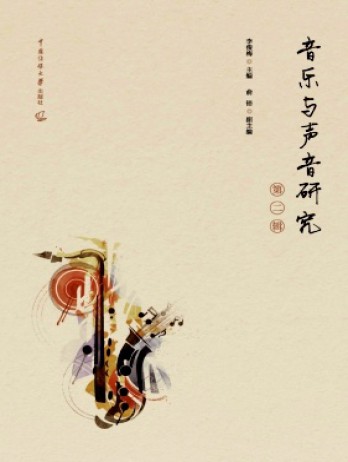 音乐与声音研究
第二辑
李俊梅 ◎ 主编 俞锫 ◎ 副主编
中国传媒大学
出版社